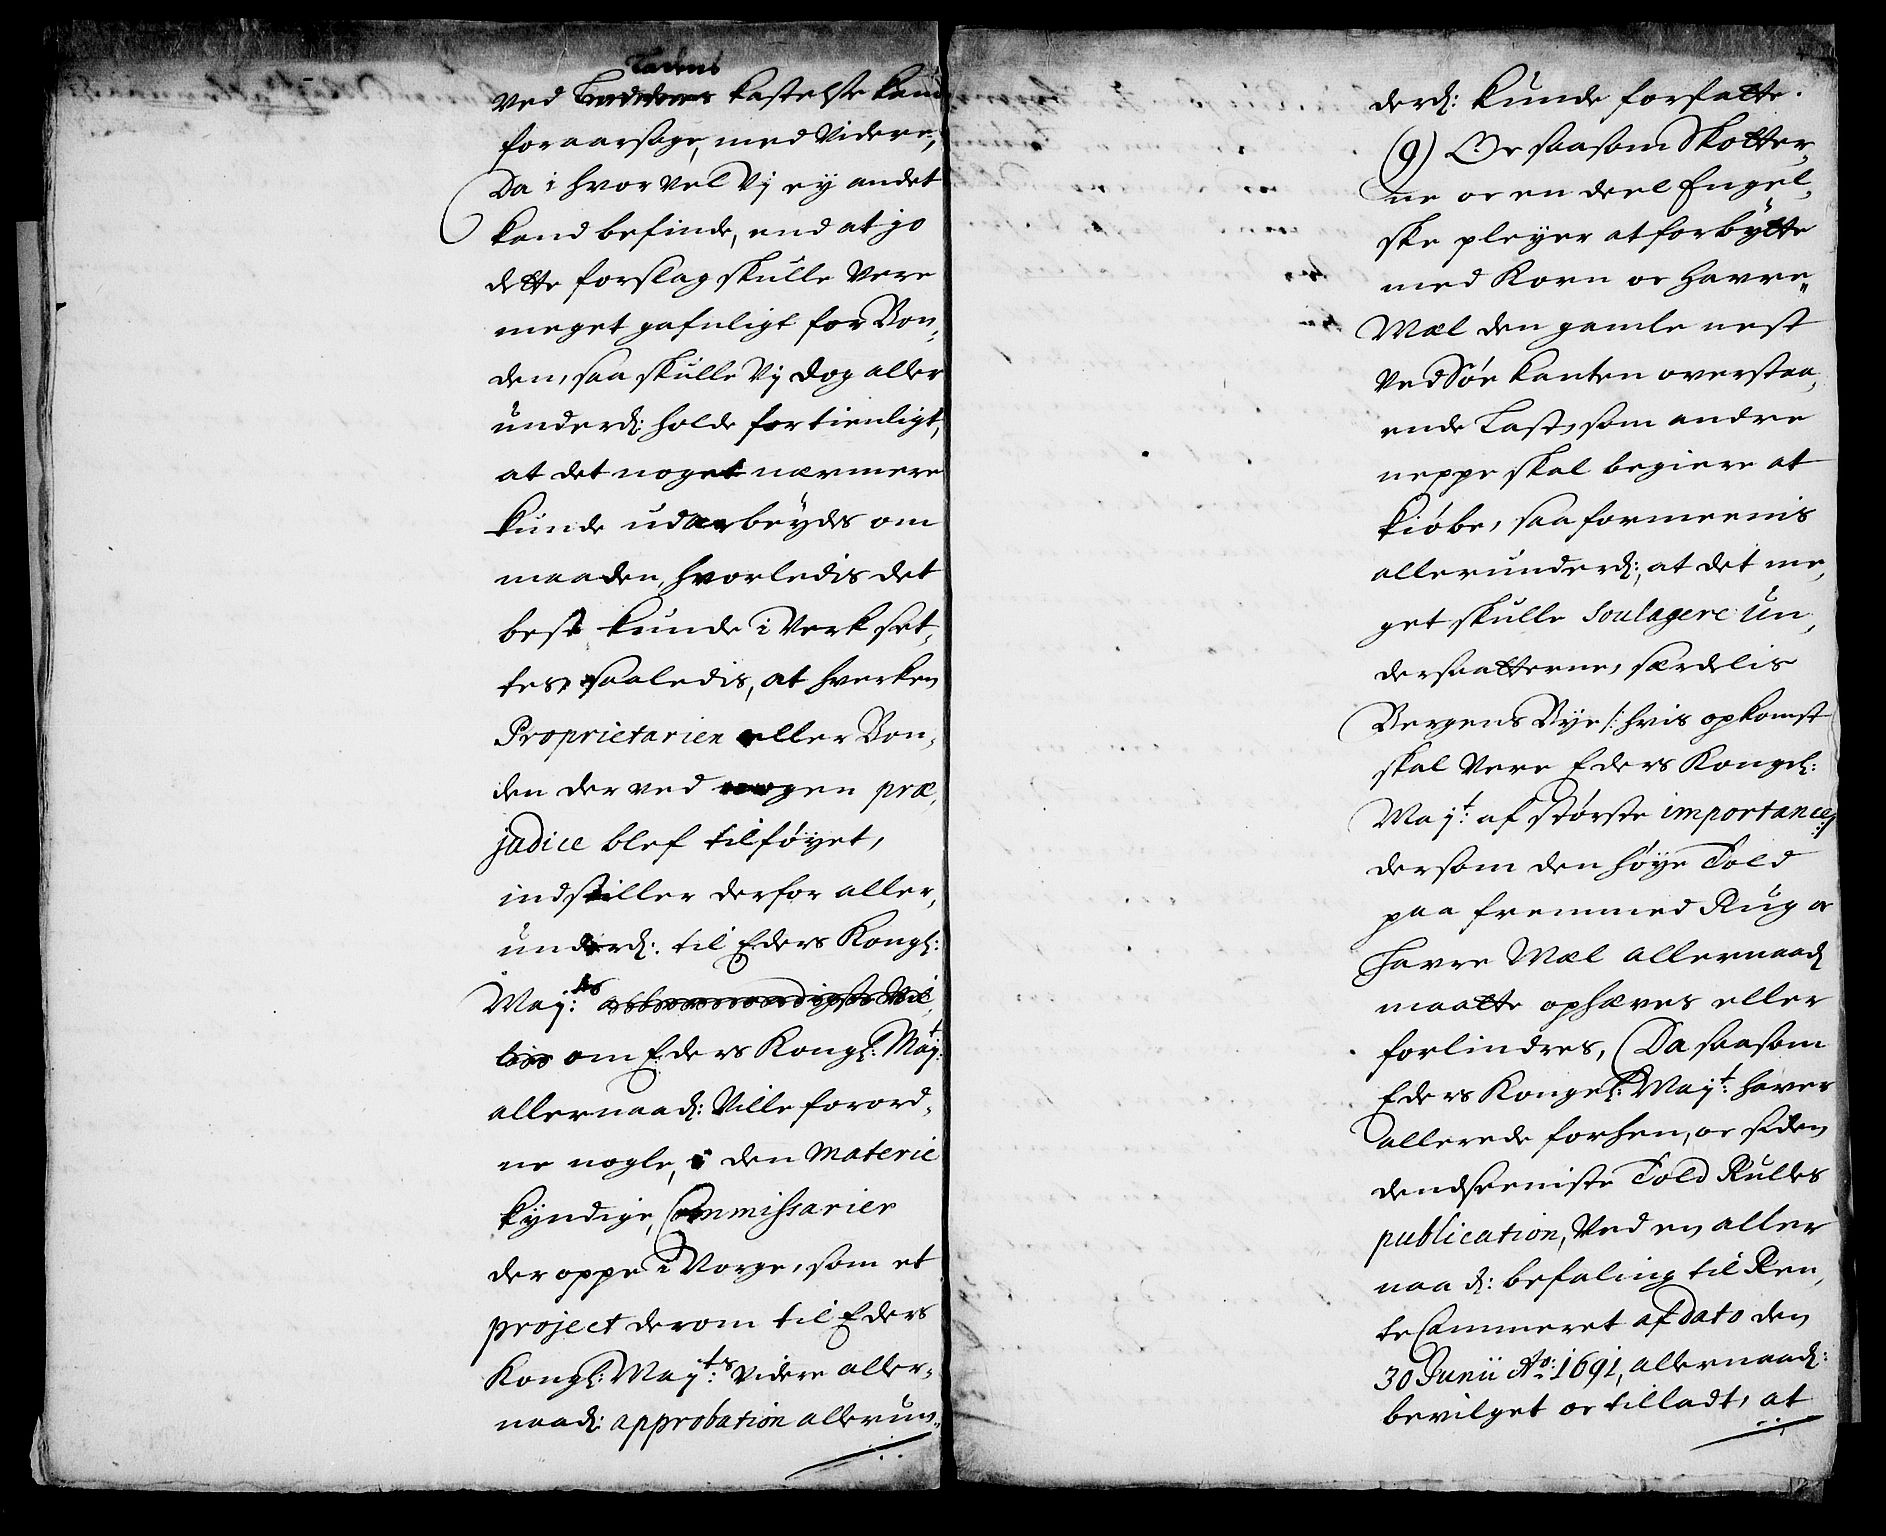 Ladens
ved kastelse kand
foraarsage, med videre,
Da i hvor vel Vj ey andet
kand befinde, end at jo
dette forslag skulle Vere
meget gafnligt for Bon,
den, saa skulle Vj dog aller
underd: holde fortienligt,
at det noget nærmere
kunde udarbeydes om
maaden, hvorledis det
best kunde i Verk set,
tes, saaledis, at hverken
Proprietarien eller Bon,
den derved nogen præ,
judice blef tilføyet,
indstiller derfor aller,
underd: til Eders Kongl:
Maj:ts
om Eders Kongl: Maj:t
allernaad: Ville forord,
ne nogle, i den Materie
kyndige, Commissarier
der oppe i Norge, som et
project derom til Eders
Kongl: Maj:ts videre aller,
naad: approbation allerun,,
derd: kunde forfatte.
(9) Oc saasom Skotter,
ne oc en deel Engel,
ske pleyer at forbytte
med Korn oc Havre,,
Mæl den gamle nest
Ved Søe kanten overstaa,
ende Last, som andre
neppe skal begiere at
kiøbe, saa formeenis
allerunderd:, at det me,
get skulle Soulagere Un,
dersaatterne, særdelis
Bergens Bye /: hvis opkomst
skal Vere Eders Kongel:
Maj:t af største importance:/
dersom den høye Told
paa fremmed Rug oc
Havre Mæl allernaad
maatte ophæves eller
forlindres, Da saasom
Eders Kongel: Maj:t haver
allerede forhen, oc siden
dend seeniste Told Rulles
publication, Ved en aller
naad: befaling til Ren,
teCammeret af dato den
30 Junii Ao: 1691, allernaad:
bevilget oc tilladt, at